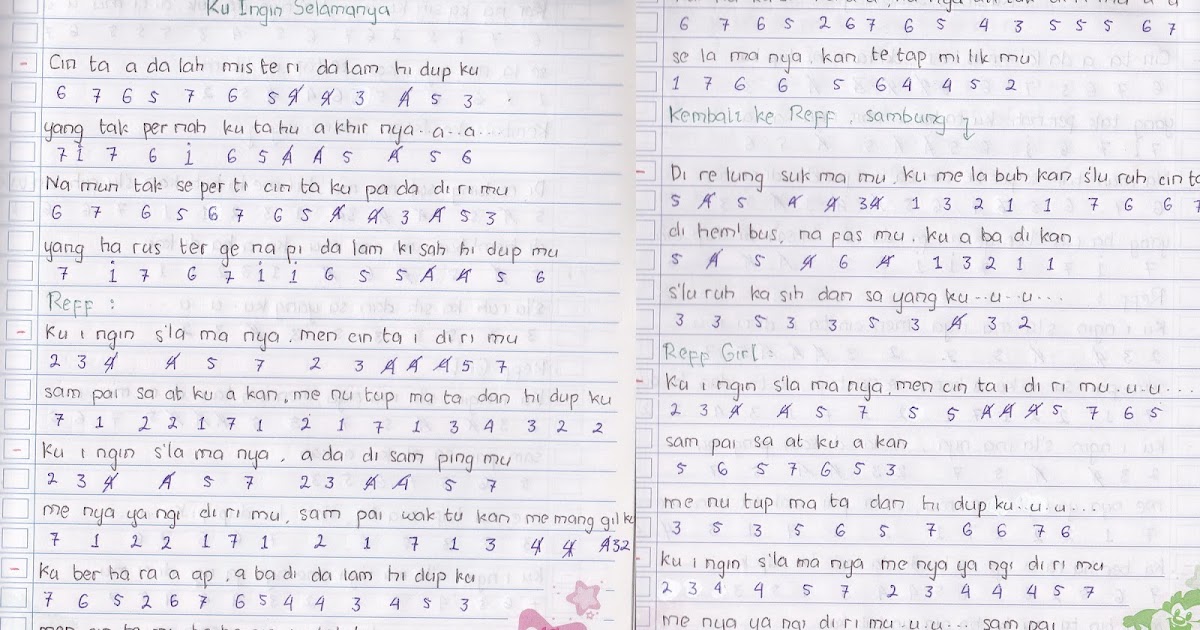 Ku Ingin Selamanya
- Cin ta a da lah mis te ri da lam hi dup ku
6 7 6 5 7 6 5 4̸ 4̸ 3 4̸ 5 3
yang tak per nah ku ta hu a khir nya..a..a....
7 1̇ 7 6 1̇ 6 5 4̸ 4̸ 5 4̸ 5 6
Na mun tak se per ti cin ta ku pa da di ri mu
6 7 6 5 6 7 6 5 4̸ 4̸ 3 4̸ 5 3
yang ha rus ter ge na pi da lam ki sah hi dup mu
7 1̇ 7 6 7 1̇ 1̇ 6 5 5 4̸ 4̸ 5 6
Reff :
- Ku i ngin s'la ma nya, men cin ta i di ri mu
2 3 4̸ 4̸ 5 7 2 3 4̸ 4̸ 4̸ 5 7
sam pai sa at ku a kan, me nu tup ma ta dan hi dup ku
7 1 2 2 1 7 1 2 1 7 1 3 4 3 2 2
- Ku i ngin s'la ma nya, a da di sam ping mu
2 3 4̸ 4̸ 5 7 2 3 4̸ 4̸ 5 7
me nya ya ngi di ri mu, sam pai wak tu kan me mang gil
7 1 2 2 1 7 1 2 1 7 1 3 4̸ 4̸ 4̸32
- Ku ber ha ra a ap, a ba di da lam hi dup ku
7 6 5 2 6 7 6 5 4 4 3 4 5 3
6 7 6 5 2 6 7 6 5 4 3 5 5 5 6 7
se la ma nya, kan te tap mi lik mu
1 7 6 6 5 6 4 4 5 2
Kembali ke Reff, sambung ↓
- Di re lung suk ma mu, ku me la buh kan s'lu ruh cin ta
5 4̸ 5 4̸ 4̸ 3 4̸ 1 3 2 1 1 7 6 6 7
di hem' bus, na pas mu, ku a ba di kan
5 4̸ 5 4̸ 6 4̸ 1 3 2 1 1
s'lu ruh ka sih dan sa yang ku..u..u...
3 3 5 3 3 5 3 4̸ 3 2
Reff Girl :
- Ku i ngin s'la ma nya, men cin ta i di ri mu.u.u....
2 3 4̸ 4̸ 5 7 5 5 4̸ 4̸ 4̸ 5 7 6 5
sam pai sa at ku a kan
5 6 5 7 6 5 3
me nu tup ma ta dan hi dup ku..u.u...
3 5 3 5 6 5 7 6 6 7 6
- ku i ngin s'la ma nya me nya ya ngi di ri mu
2 3 4 4 5 7 2 3 4 4 4 5 7
me nya ya ngi di ri mu.u.u... sam pai